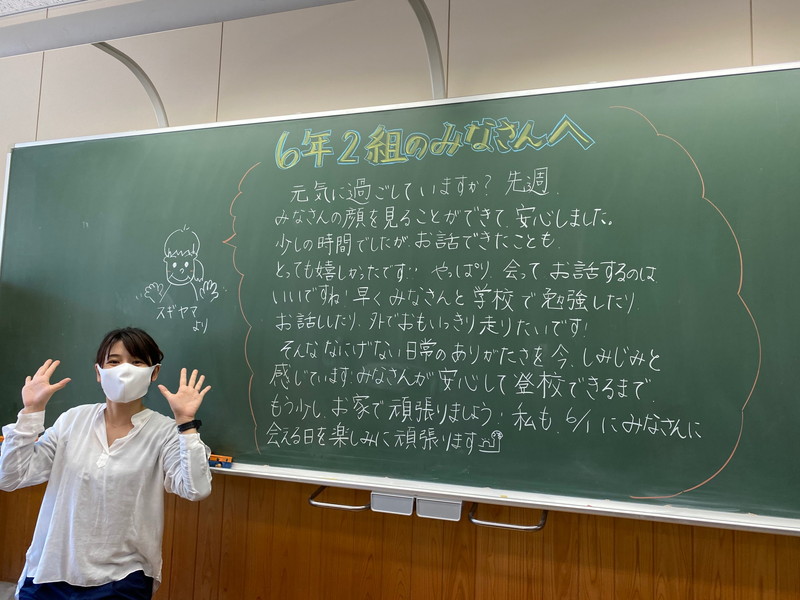 6年2組のみなさんへ
元気に過ごしていますか? 先週、
みなさんの顔を見ることができて、安心しました。
少しの時間でしたが、お話できたことも、
とっても嬉しかったです!! やっぱり、会って お話するのは
いいですね! 早く みなさんと 学校で 勉強したり、
お話ししたり、外でおもいっきり走りたいです!
そんな なにげない日常の ありがたさを 今、しみじみと
感じています。みなさんが 安心して 登校できるまで、
もう少し、お家で 頑張りましょう! 私も、6/1 にみなさんに
会える日を楽しみに頑張ります
スギヤマ
より